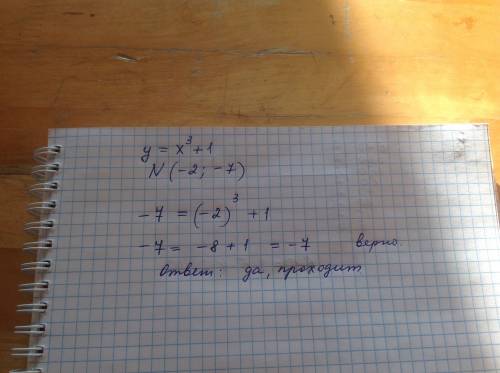 y = x³ + 1
N (-2; -7)
-7 = (-2)³ + 1
-7 = -8 + 1 = -7 верно.
Ответ: да, проходит